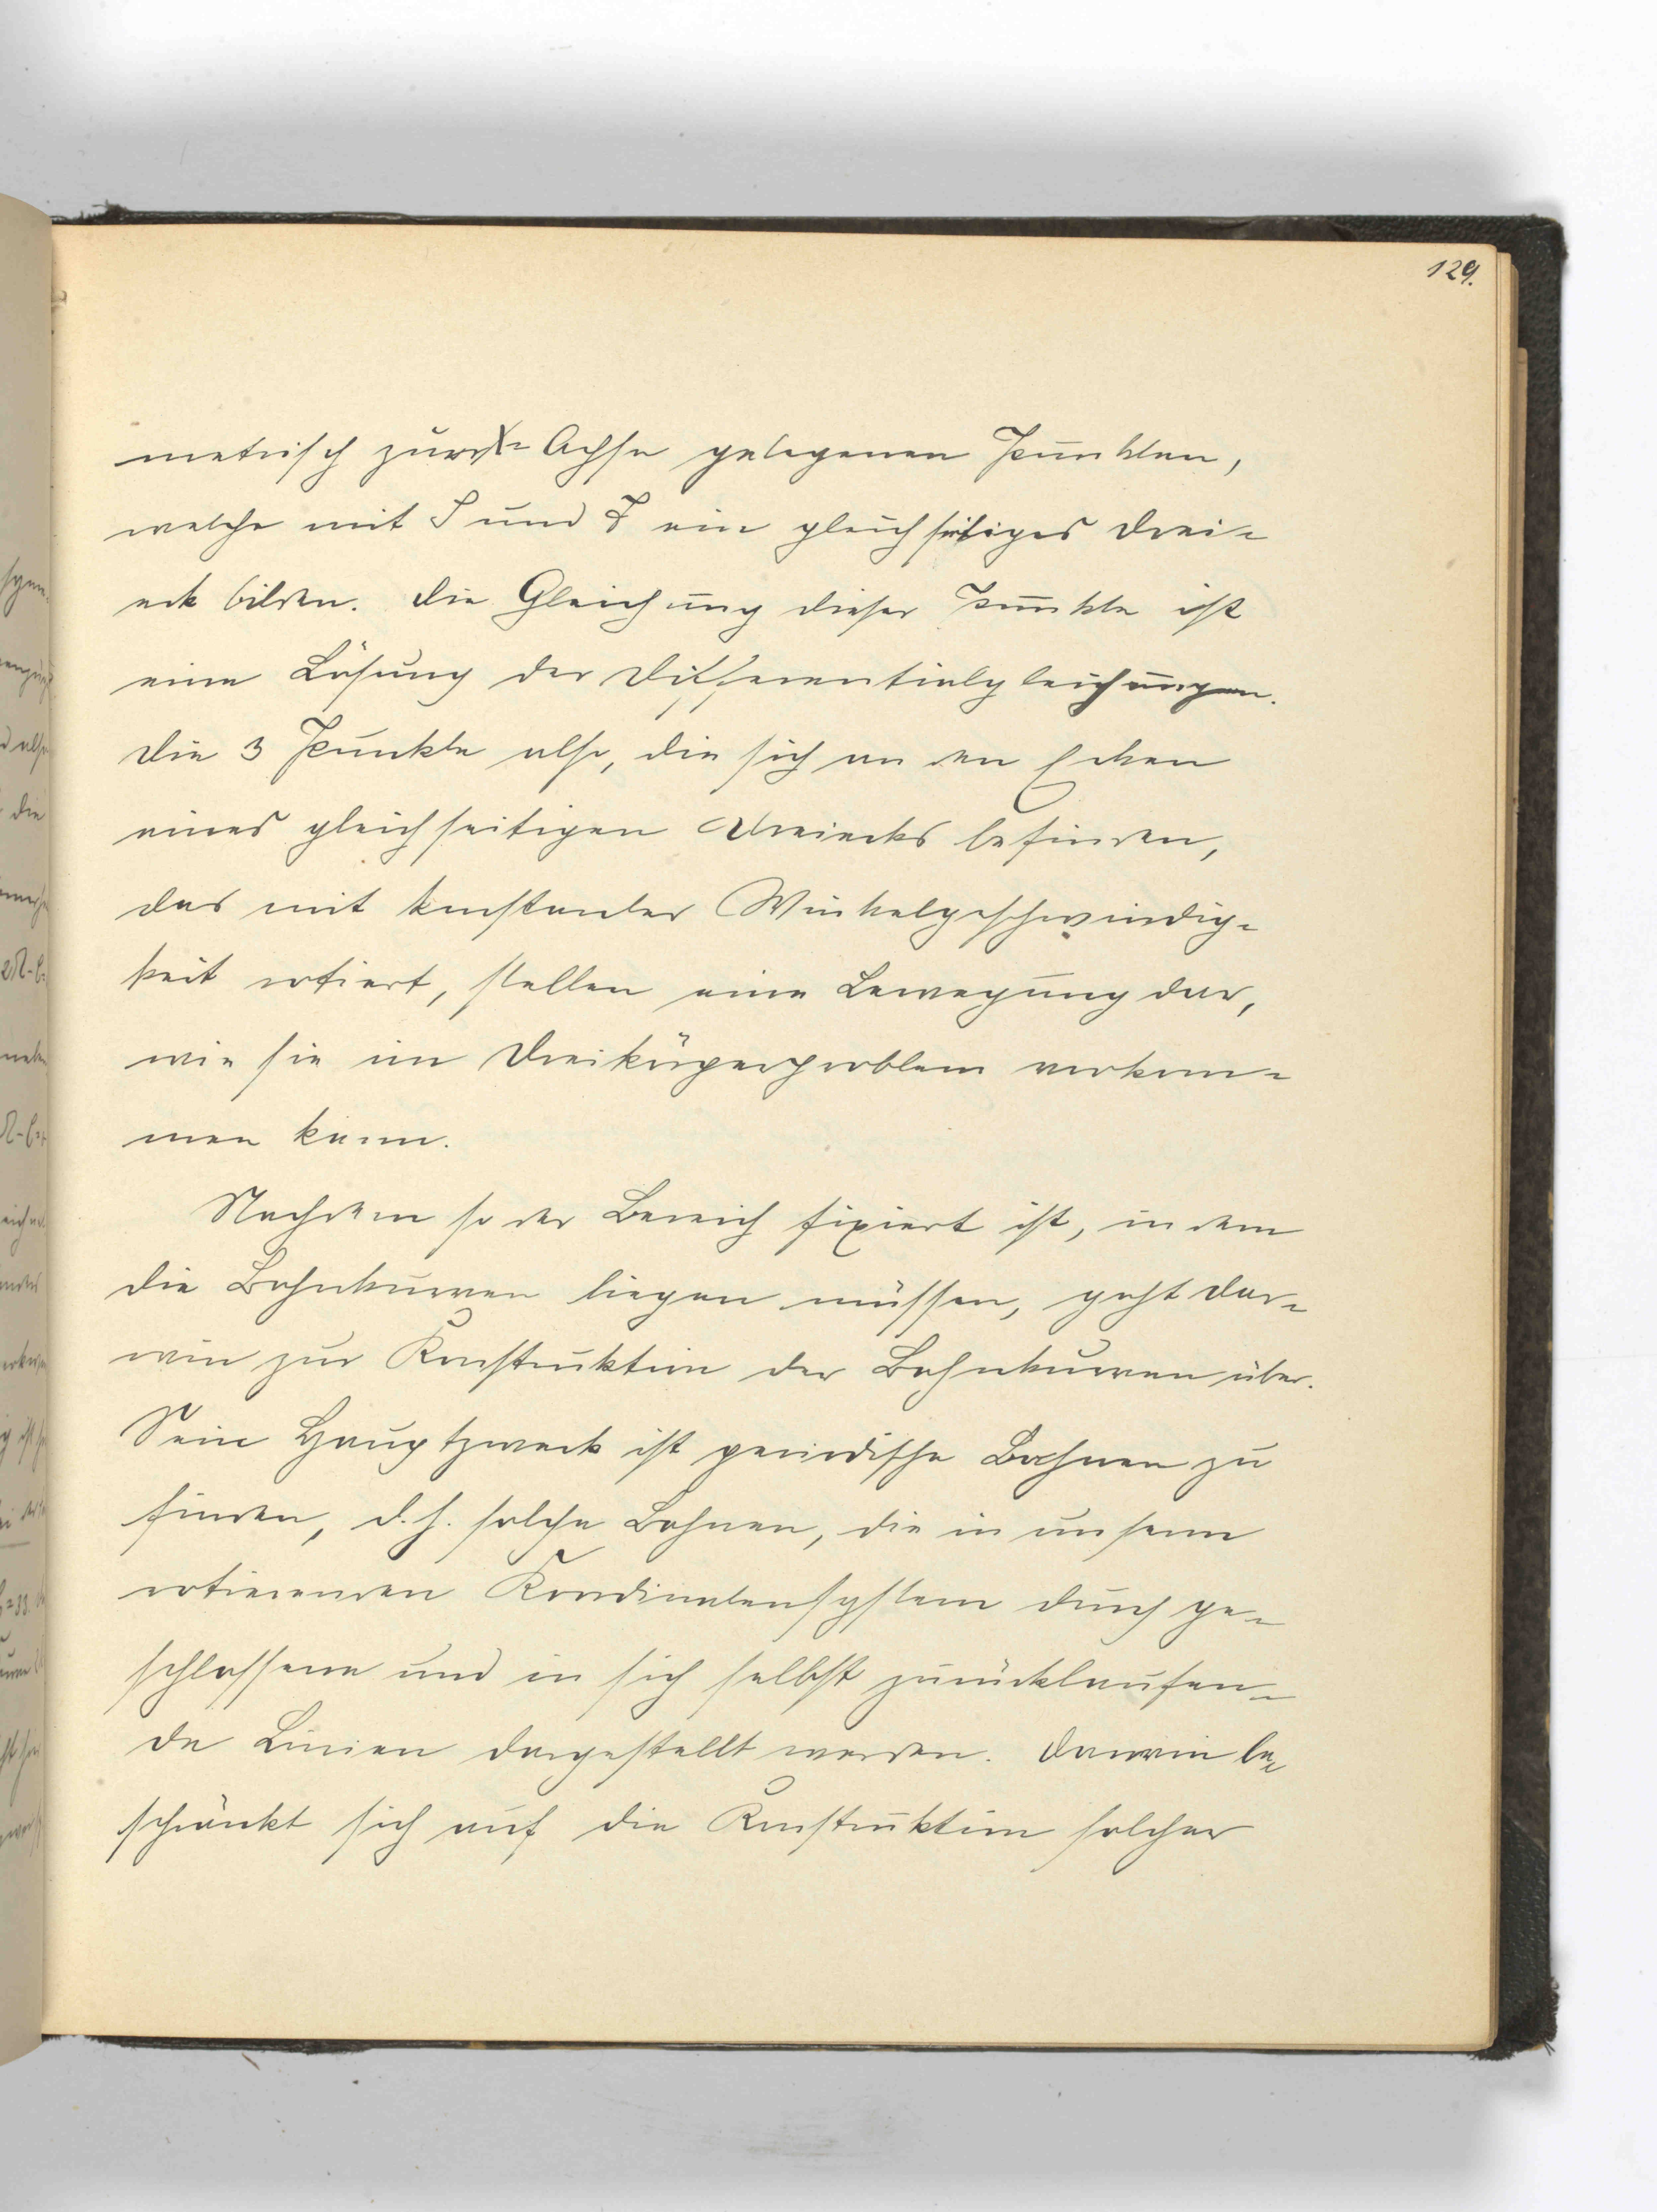 129.
metrisch zur X-Achse gelegenen Punkten,
welche mit S und J ein gleichseitiges Drei-
eck bilden. Die Gleichung dieser Punkte ist
eine Lösung der Differentialgleichungen.
Die 3 Punkte also, die sich an den Ecken
eines gleichseitigen Dreiecks befinden,
das mit konstanter Winkelgeschwindig-
keit rotiert, stellen eine Bewegung dar,
wie sie im Dreikörperproblem vorkom-
men kann.
Nachdem so der Bereich fixiert ist, in dem
die Bahnkurven liegen müssen, geht Dar-
win zur Konstruktion der Bahnkurven über.
Sein Hauptzweck ist periodische Bahnen zu
finden, d.h. solche Bahnen, die in unserm
rotierenden Koordinatensystem durch ge-
schlossene und in sich selbst zurücklaufen-
de Linien dargestellt werden. Darwin be-
schränkt sich auf die Konstruktion solcher